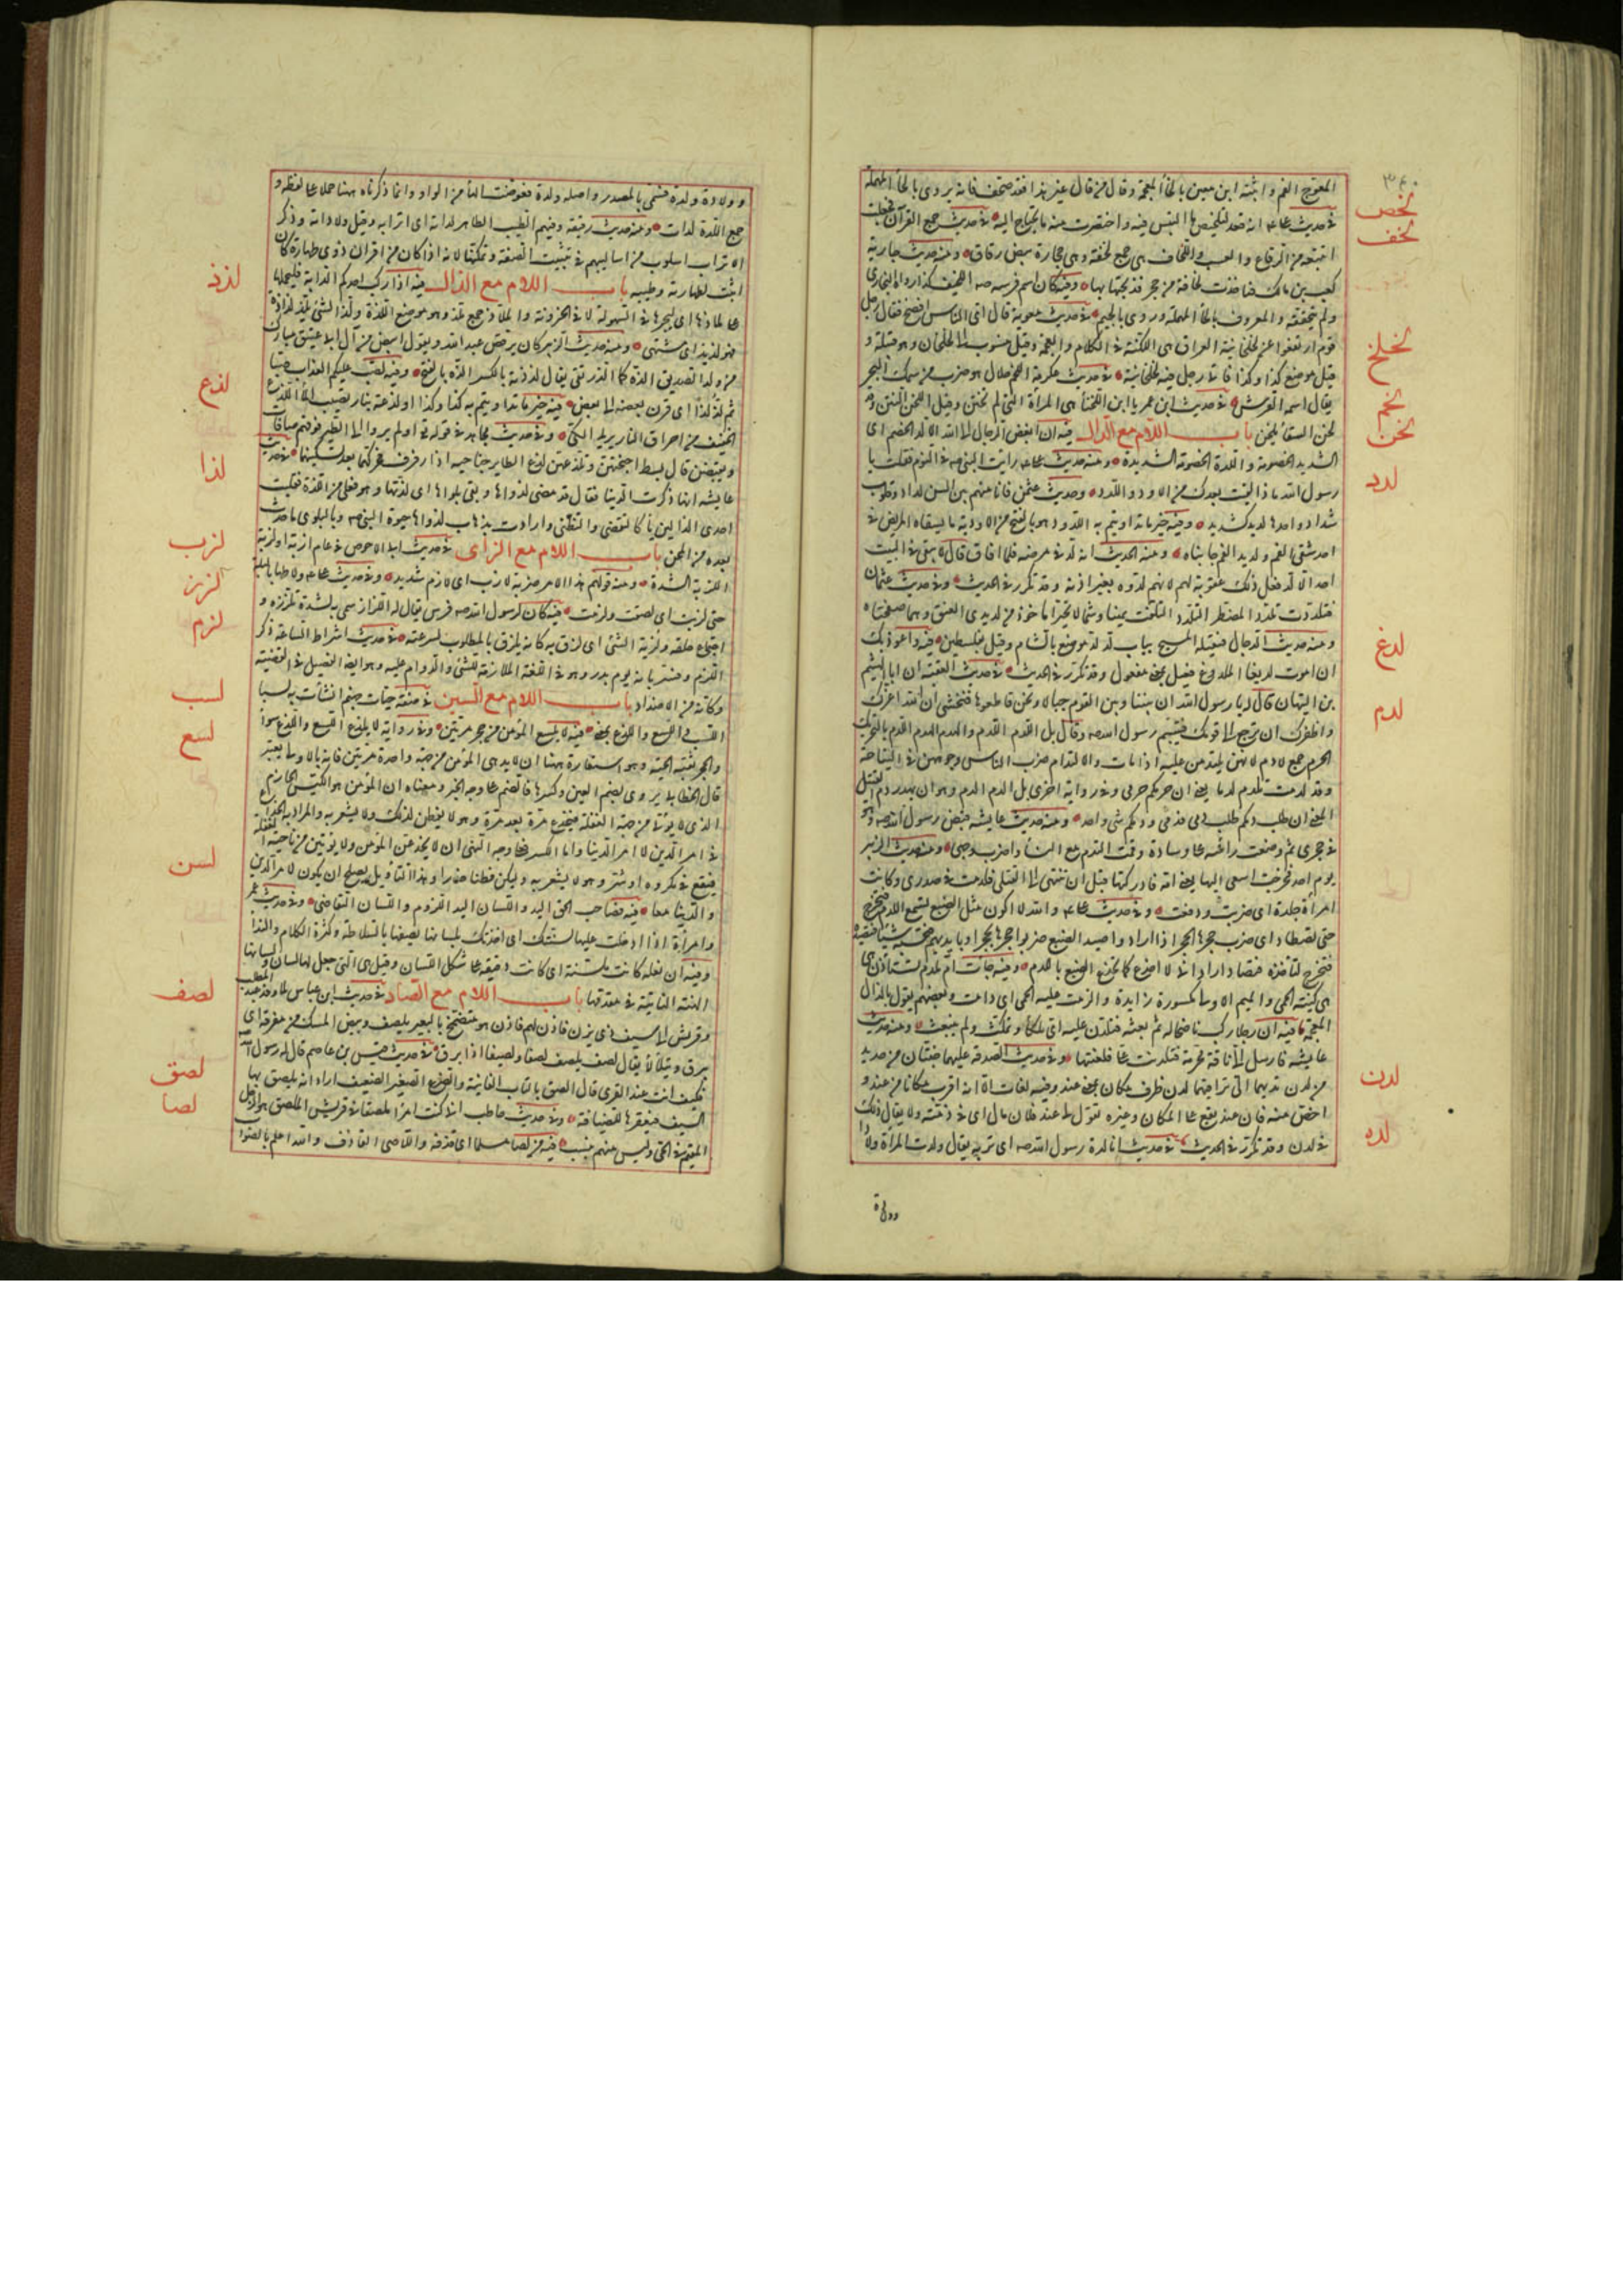 ٣٤٠
المعوّج الفم واثبته ابن معين بالخاء المعجمة وقال من قال غير هذا فقد صحف فانه يروى بالحاء المهملة
لخص
في حديث علي انه قعد لتلخيص ما التبس فيه واختصرت منه ما يحتاج اليه وفي حديث جمع القرآن فجعلت
لخف
اتتبعه من الرقاع والعسب واللخاف هي جمع لخفة وهي حجارة بيض رقاق ومنه حديث جارية
كعب بن مالك فاخذت لخافة من حجر فذبحتها بها وفيه كان اسم فرسه اللخيف كذا رواه البخاري
ولم يتحققه والمعروف بالحاء المهملة وروى بالجيم في حديث معوية قال اي الناس افصح فقال رجل
لخلخ
قوم ارتفعوا عن لخلخانية العراق هي اللكنة في الكلام والعجمة وقيل منسوب الى لخلخان وهو قبيلة و
لخم
قيل موضع كذا وكذا فاتى رجل فيه لخلخانية في حديث عكرمة اللخم حلال هو ضرب من سمك البحر
لخن
يقال اسمه القرش في حديث ابن عمر يا ابن اللخناء هي المرأة التي لم تختن وقيل اللخن النتن وقد
لخن السقاء يلخن باب اللام مع الدال فيه ان ابغض الرجال الى الله الالد الخصم اي
لدد
الشديد الخصومة واللدة الخصومة الشديدة ومنه حديث علي رايت النبي في النوم فقلت يا
رسول الله ماذا لقيت بعدك من الاود واللدد وحديث عثمن فانا منهم بين السن لداد وقلوب
شداد واحدها لديد كشديد وفيه خير ما تداويتم به اللدود هو بالفتح من الادوية ما يسقاه المريض في
احد شقي الفم ولديدا الفم جانباه ومنه الحديث انه لد في مرضه فلما افاق قال لا يبقى في البيت
احد الا لد فعل ذلك عقوبة لهم لانهم لدوه بغير اذنه وقد تكرر في الحديث وفي حديث عثمان
فتلددت تلدد المضطر التلدد التلفت يمينا وشمالا تحيرا ماخوذ من لديدي العنق وهما صفحتاه
لدغ
ومنه حديث الدجال فيقتله المسيح بباب لد لد موضع بالشام وقيل بفلسطين فيه واعوذ بك
ان اموت لديغا الملدوغ فعيل بمعنى مفعول وقد تكرر في الحديث في حديث العقبة ان ابا الهيثم
لدم
بن التيهان قال له يا رسول الله ان بيننا وبين القوم حبالا ونحن قاطعوها فنخشى ان الله اعزك
واظفرك ان ترجع الى قومك فتبسم رسول الله وقال بل اللدم اللدم والهدم الهدم اللدم بالتحريك
الحرم جمع لادم لانهن يلتدمن عليه اذا مات والالتدام ضرب الناس وجوههن في النياحة
وقد لدمت تلدم لدما يعني ان حرمكم حرمي وفي رواية اخرى بل الدم الدم وهو ان يهدر دم القتيل
المعنى ان طلب دمكم طلب دمي فدمي ودمكم شئ واحد ومنه حديث عايشه قبض رسول الله وهو
في حجري ثم وضعت راسه على وسادة وقمت التدم مع النساء واضرب وجهي ومنه حديث الزبير
يوم احد فخرجت اسعى اليها يعني امه فادركتها قبل ان تنتهي الى القتلى فلدمت في صدري وكانت
امرأة جلدة اي ضربت ودفعت وفي حديث علي والله لا اكون مثل الضبع تسمع اللدم فتخرج
حتى تصطاد اي ضرب جحرها بحجر اذا ارادوا صيد الضبع ضربوا جحرها بحجر او بايديهم فتحسبه شيئا تصيده
فتخرج لتاخذه فتصاد اراد اني لا اخدع كما تخدع الضبع باللدم وفيه جاءت ام ملدم تستاذن هي
هي كنية الحمى والميم الاولى مكسورة زايدة والزمت عليه الحمى اي دامت وبعضهم يقول بالذال
المعجمة فيه ان رجلا ركب ناضحا له ثم بعثه فتلدن عليه اي تلكأ وتمكث ولم ينبعث ومنه حديث
لدن
عايشه فارسل الى ناقة محرمة فتلدنت علي فلعنتها وفي حديث الصدقة عليهما جنتان من حديد
من لدن ثديهما الى تراقيهما لدن ظرف مكان بمعنى عند وفيه لغات الا انه اقرب مكانا من عند و
اخص منه فان عند يقع على المكان وغيره تقول لي عند فلان مال اي في ذمته ولا يقال ذلك
لده
في لدن وقد تكرر في الحديث في حديث انا لدة رسول الله اي تربه يقال ولدت المرأة ولادا
وولادة
وولادة ولدة فسمي بالمصدر واصله ولدة فعوضت الهاء من الواو وانما ذكرناه ههنا حملا على لفظه و
جمع اللدة لدات ومنه حديث رقيقة وفيهم الطيب الطاهر لداته اي اترابه وقيل ولاداته وذكر
الاتراب اسلوب من اساليبهم في تثبيت الصفة وتمكينها لانه اذا كان من اقران ذوي طهارة كان
لذذ
اثبت لطهارته وطيبه باب اللام مع الذال فيه اذا ركب احدكم الدابة فليحملها
على ملاذها اي ليجرها في السهولة لا في الحزونة والملاذ جمع ملذ وهو موضع اللذة ولذ الشئ يلذ لذاذة
فهو لذيذ اي مشتهى ومنه حديث الزبير كان يرقص عبد الله ويقول ابيض من آل ابي عتيق مبارك
من ولد الصديق الذه كما الذ ريقي يقال لذذته بالكسر الذه بالفتح وفيه لصب عليكم العذاب صبا
لذع
ثم لذ لذا اي قرن بعضه الى بعض فيه خير ما تداويتم به كذا وكذا او لذعة بنار تصيب الما اللذع
الخفيف من احراق النار يريد الكي وفي حديث مجاهد في قوله تع اولم يروا الى الطير فوقهم صافات
لذا
ويقبضن قال بسط اجنحتهن وتلذعهن لذع الطاير جناحيه اذا رفرف فحركهما بعد تسكينهما في حديث
عايشه انها ذكرت الدنيا فقال قد مضى لذواها وبقي بلواها اي لذتها وهو فعلى من اللذة فقلبت
احدى الذالين ياء كالتقضي والتظني وارادت بذهاب لذواها حيوة النبي وبالبلوى ما حدث
لزب
بعده من المحن باب اللام مع الزاى في حديث ابي الاحوص في عام ازبة او لزبة
لزز
اللزبة الشدة ومنه قولهم هذا الامر ضربة لازب اي لازم شديد وفي حديث علي ولاطها بالبلة
حتى لزبت اي لصقت ولزمت فيه كان لرسول الله فرس يقال له اللزاز سمي به لشدة تلززه و
لزم
اجتماع خلقه ولز به الشئ اي لزق به كانه يلزق بالمطلوب لسرعته في حديث اشراط الساعة ذكر
اللزام وفسر بانه يوم بدر وهو في اللغة الملازمة للشئ والدوام عليه وهو ايضا الفصل في القضية
لسب
وكانه من الاضداد باب اللام مع السين في صفة حيات جهنم انشأت به لسبا
لسع
اللسب و اللسع واللدغ بمعنى فيه لا يلسع المؤمن من جحر مرتين وفي رواية لا يلدغ اللسع واللدغ سواء
والجحر ثقب الحية وهو استعارة ههنا اي لا يدهى المؤمن من جهة واحدة مرتين فانه بالاولى يعتبر
قال الخطابي يروى بضم العين وكسرها فالضم على وجه الخبر ومعناه ان المؤمن هو الكيس الحازم
الذي لا يؤتى من جهة الغفلة فيخدع مرة بعد مرة وهو لا يفطن لذلك ولا يشعر به والمراد به الخداع
في امر الدين لا امر الدنيا واما الكسر فعلى وجه النهي اي لا يخدعن المؤمن ولا يؤتين من ناحية الغفلة
لسن
فيقع في مكروه او شر وهو لا يشعر به وليكن فطنا حذرا وهذا التاويل يصلح ان يكون لامر الدين
والدنيا معا فيه لصاحب الحق اليد واللسان اليد اللزوم واللسان التقاضي وفي حديث عمر
وامرأة اذا دخلت عليها لسنتك اي اخذتك بلسانها يصفها بالسلاطة وكثرة الكلام والبذا
وفيه ان نعله كانت ملسنة اي كانت دقيقة على شكل اللسان وقيل هي التي جعل لها لسان ولسانها
لصف
الهنة الناتئة في مقدمها باب اللام مع الصاد في حديث ابن عباس لما وفد عبد المطلب
وقريش الى سيف ذي يزن فاذن لهم فاذن هو متضمخ بالعبير يلصف وبيص المسك من مفرقه اي
لصق
يبرق ويتلألأ يقال لصف يلصف لصفا ولصيفا اذا برق في حديث قيس بن عاصم قال له رسول الله
فكيف انت عند القرى قال الصق بالناب الفانية والضرع الصغير الضعيف اراد انه يلصق بها
لصا
السيف فيعرقبها للضيافة وفي حديث حاطب اني كنت امرأ ملصقا في قريش الملصق هو الرجل
المقيم في الحي وليس منهم بنسب فيه من لصا مسلما اي قذفه واللاصي القاذف والله اعلم بالصواب